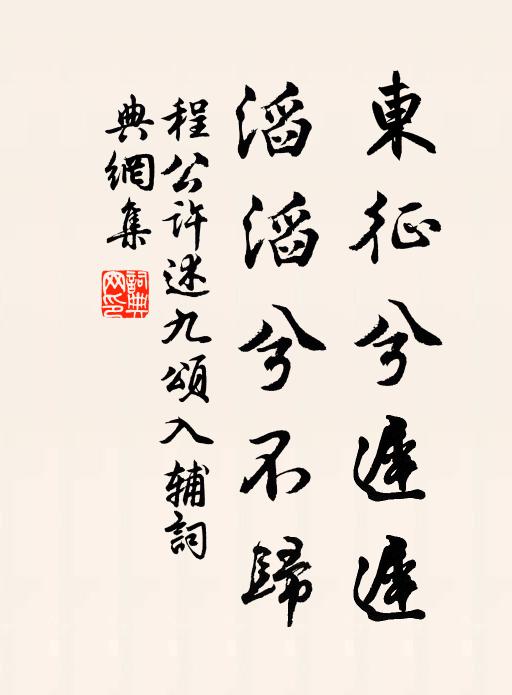 東征兮遲遲
滔滔兮不歸
程公許述九頌入輔詞
典網集
詞典網印